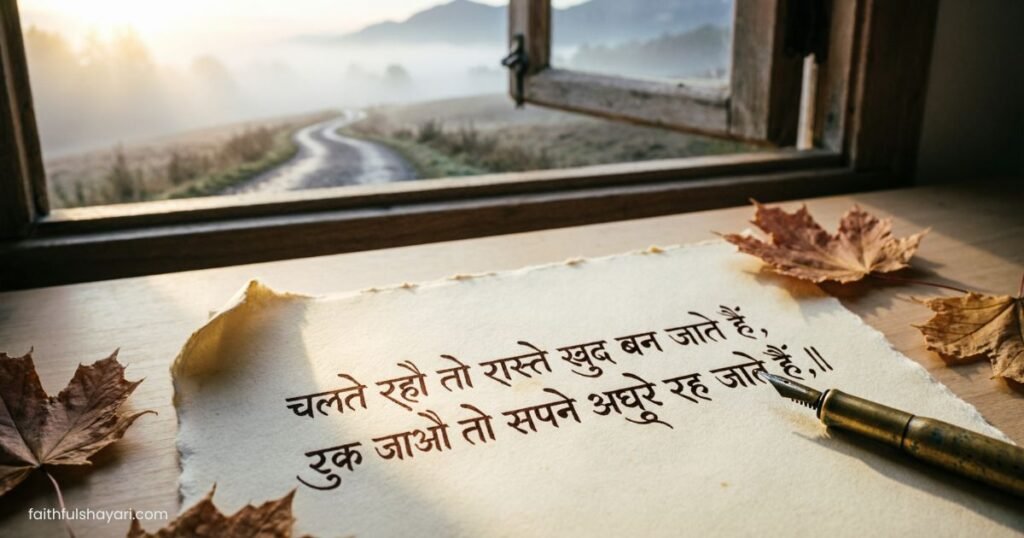 चलते रहौ तो रास्ते खुद बन जाते हैं,
रुक जाऔ तो सपने अघूरे रह जाते हैं,॥
faithfulshayari.com